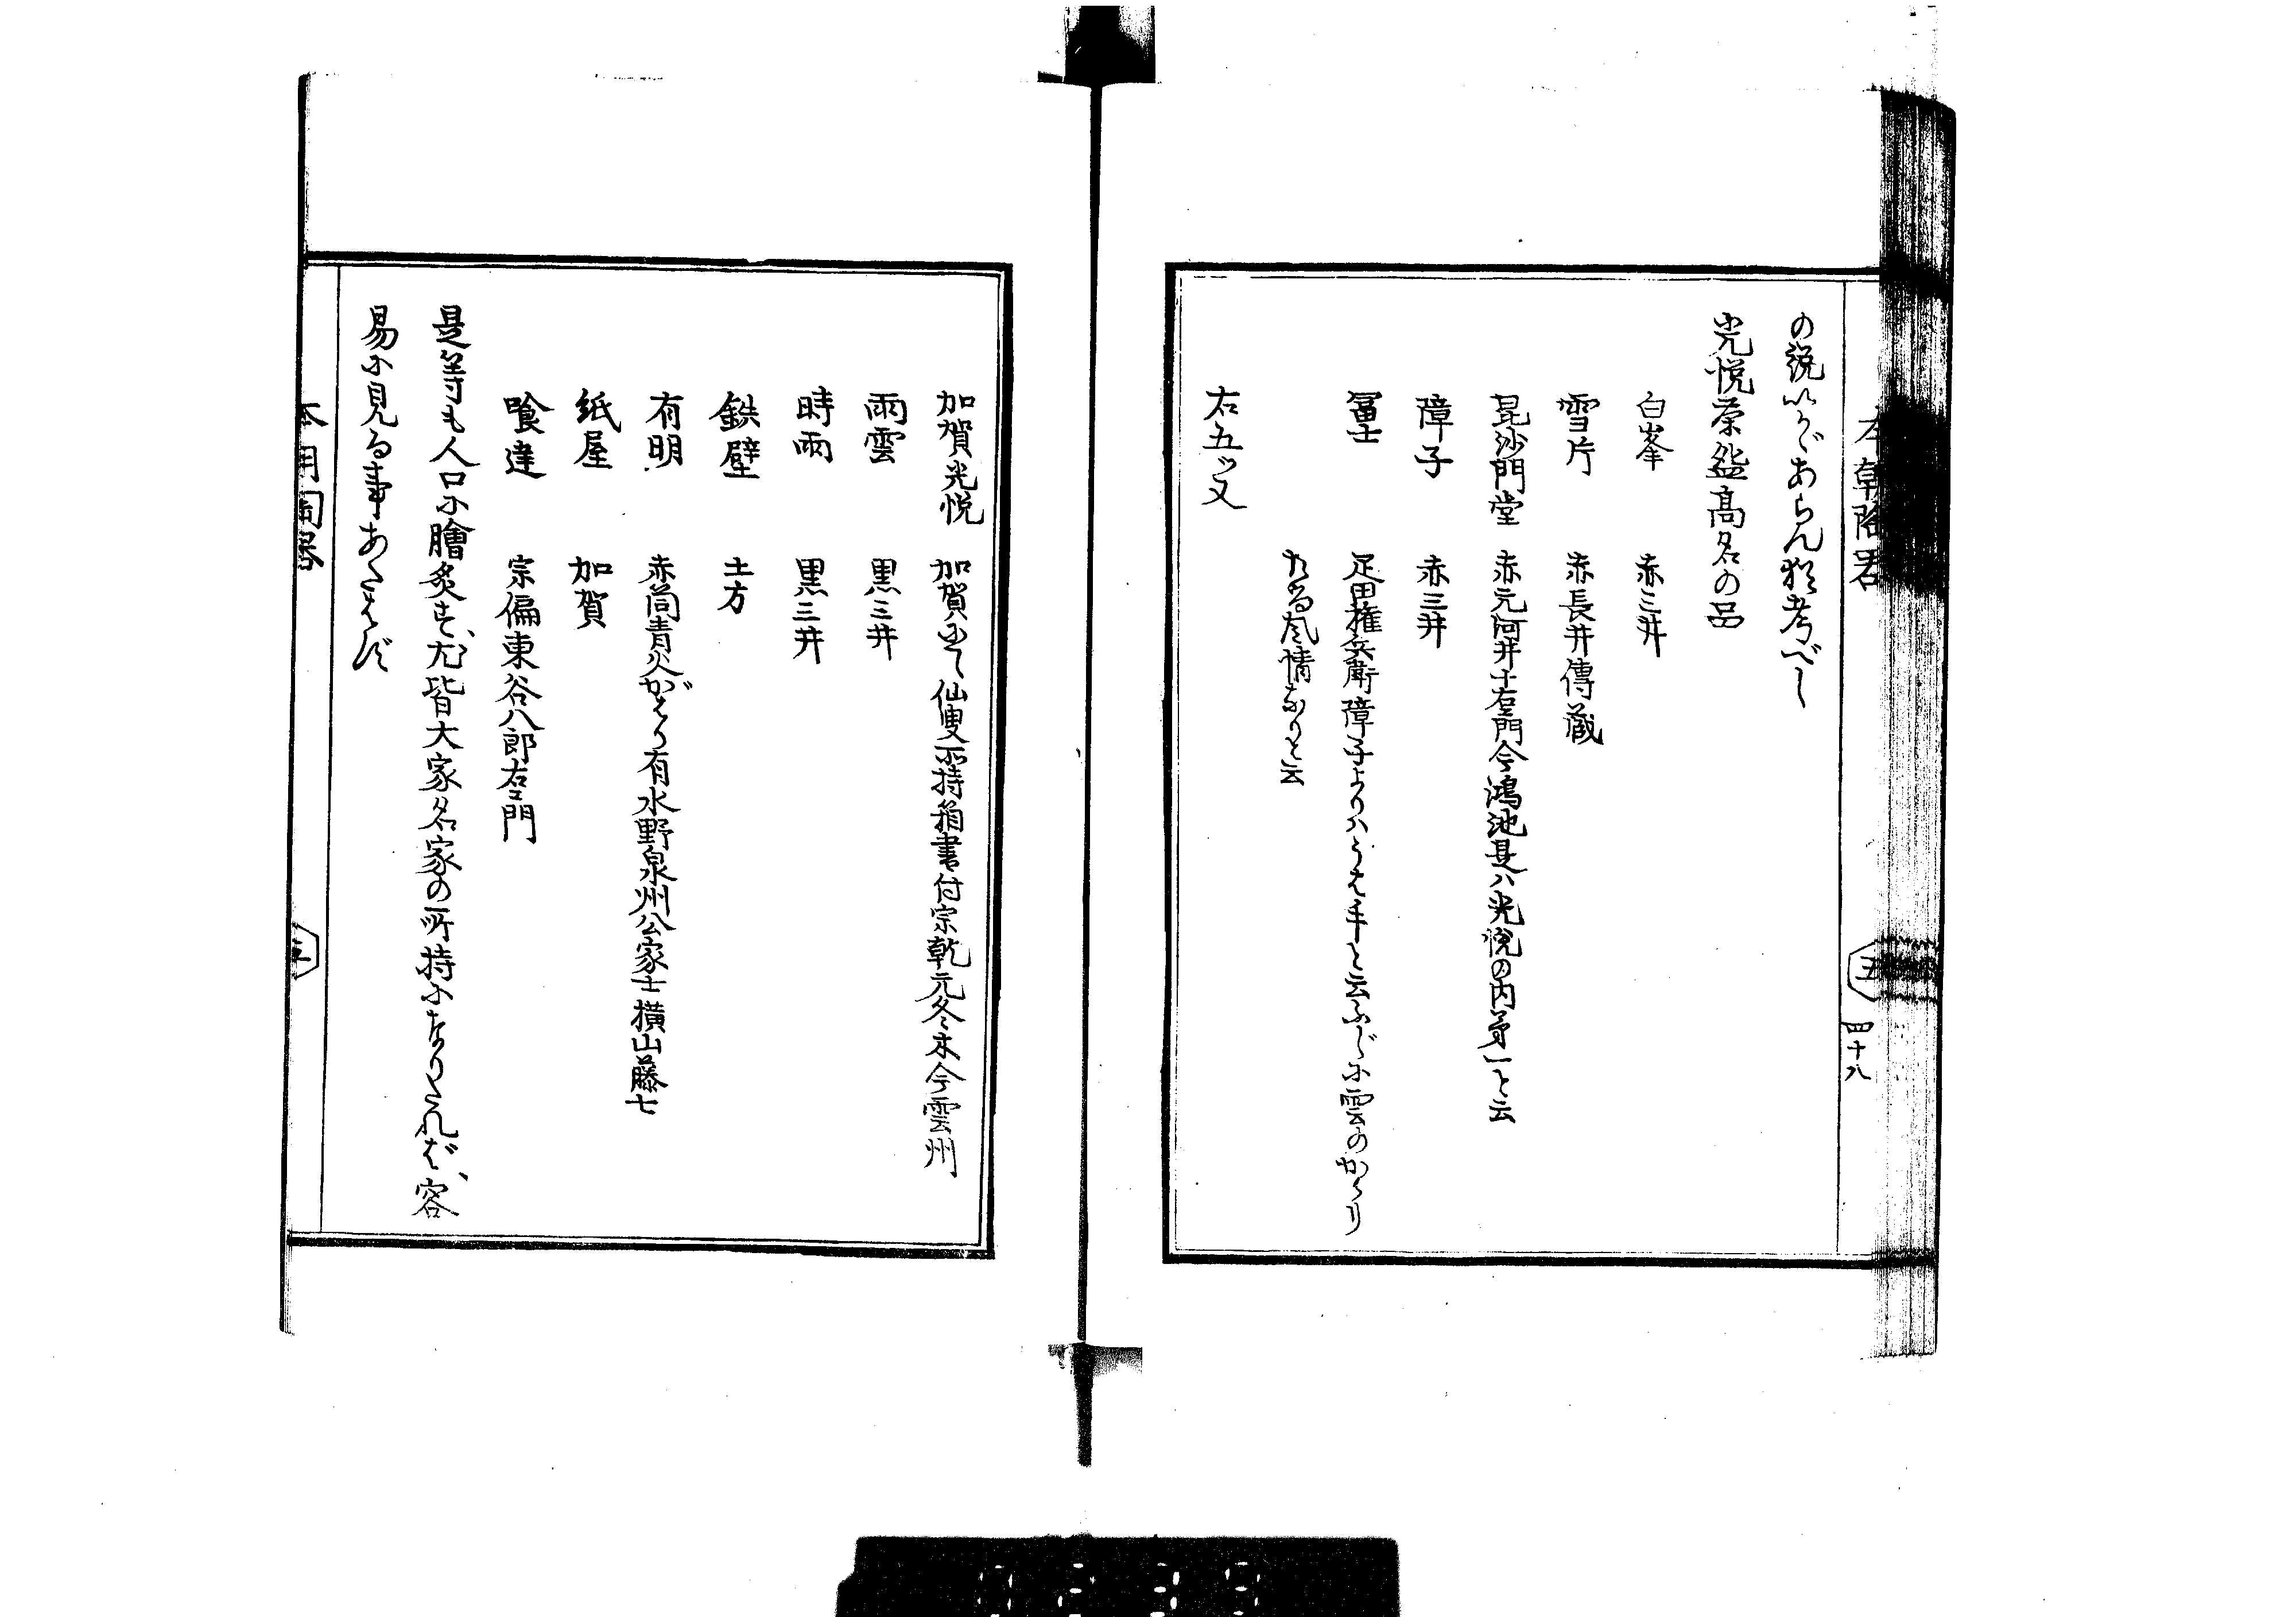 の説いかゞあらん猶考べし
光悦茶盌高名の品
白峯 赤三井
雪片 赤長井傳蔵
毘沙門堂 赤元河井十左エ門今鴻池是ハ光悦の内第一と云
障子 赤三井
冨士 疋田権兵衛障子よりハうは手と云ふじに雲のかゝり
たる風情なりと云
右五ツ又
本朝陶器
五
四十八
加賀光悦 加賀にて仙叟所持箱書付宗乾元冬木今雲州
雨雲 黒三井
時雨 黒三井
鉄壁 土方
有明 赤筒青火がはり有水野泉州公家士横山藤七
紙屋 加賀
喰違 宗偏東谷八郎右エ門
是等も人口に膾炙す、尤皆大家名家の所持になりたれば、容
易に見る事あたはず
本朝陶器
五